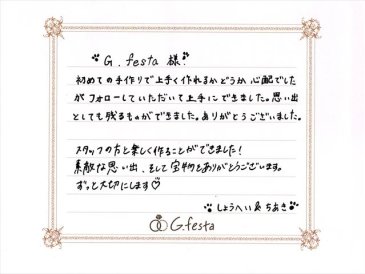 G. festa 様.
初めての手作りで上手く作れるかどうか心配でした
がフォローしていただいて上手にできました。思い出
としても残るものができました。ありがとうございました。
スタッフの方と楽しく作ることができました!
素敵な思い出、そして宝物をありがとうございます。
ずっと大切にします♡
しょうへい & ちあき
G.festa